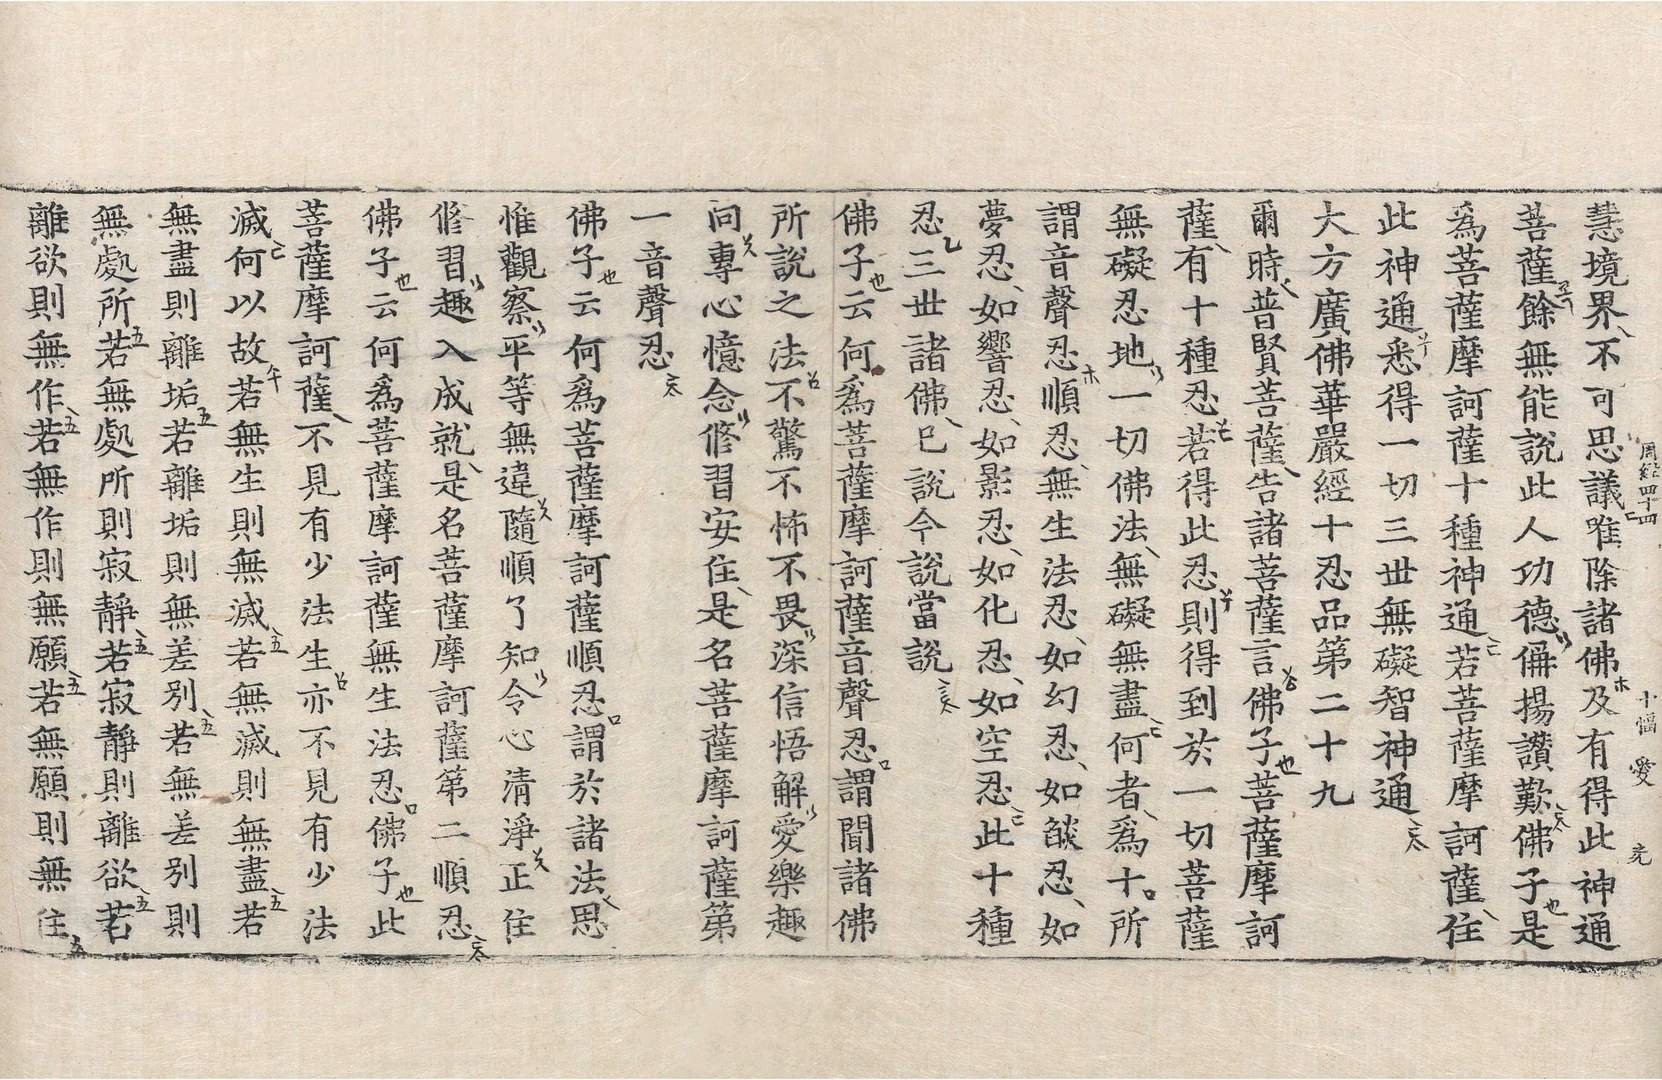 周經四十四
十幅
愛
慧境界不可思議唯除諸佛及有得此神通
菩薩餘無能說此人功德偁揚讚歎佛子是
為菩薩摩訶薩十種神通若菩薩摩訶薩住
此神通悉得一切三世無礙智神通
大方廣佛華嚴經十忍品第二十九
爾時普賢菩薩告諸菩薩言佛子菩薩摩訶
薩有十種忍若得此忍則得到於一切菩薩
無礙忍地一切佛法無礙無盡何者為十所
謂音聲忍順忍無生法忍如幻忍如燄忍如
夢忍如響忍如影忍如化忍如空忍此十種
忍三世諸佛已說今說當說
佛子云何為菩薩摩訶薩音聲忍謂聞諸佛
所說之法不驚不怖不畏深信悟解愛樂趣
向專心憶念修習安住是名菩薩摩訶薩第
一音聲忍
佛子云何為菩薩摩訶薩順忍謂於諸法思
惟觀察平等無違隨順了知令心清淨正住
修習趣入成就是名菩薩摩訶薩第二順忍
佛子云何為菩薩摩訶薩無生法忍佛子此
菩薩摩訶薩不見有少法生亦不見有少法
滅何以故若無生則無滅若無滅則無盡若
無盡則離垢若離垢則無差別若無差別則
無處所若無處所則寂靜若寂靜則離欲若
離欲則無作若無作則無願若無願則無住